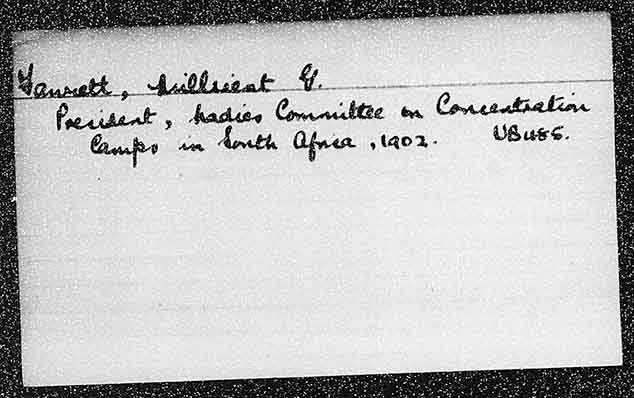 Fawcett, Millicent G.
President, Ladies Committee on Concentration
Camps in South Africa, 1902. UB485.